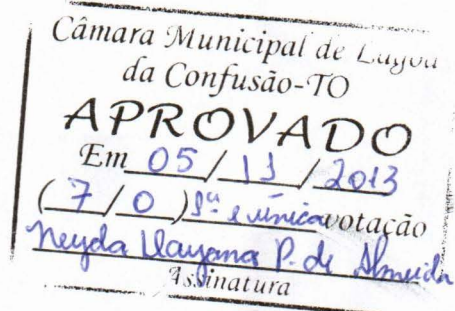 Câmara Municipal de Lagoa
da Confusão-TO
APROVADO
Em 05/11/2013
(7/0) 1ª e única votação
Neyda Dayana P. de Almeida
Assinatura